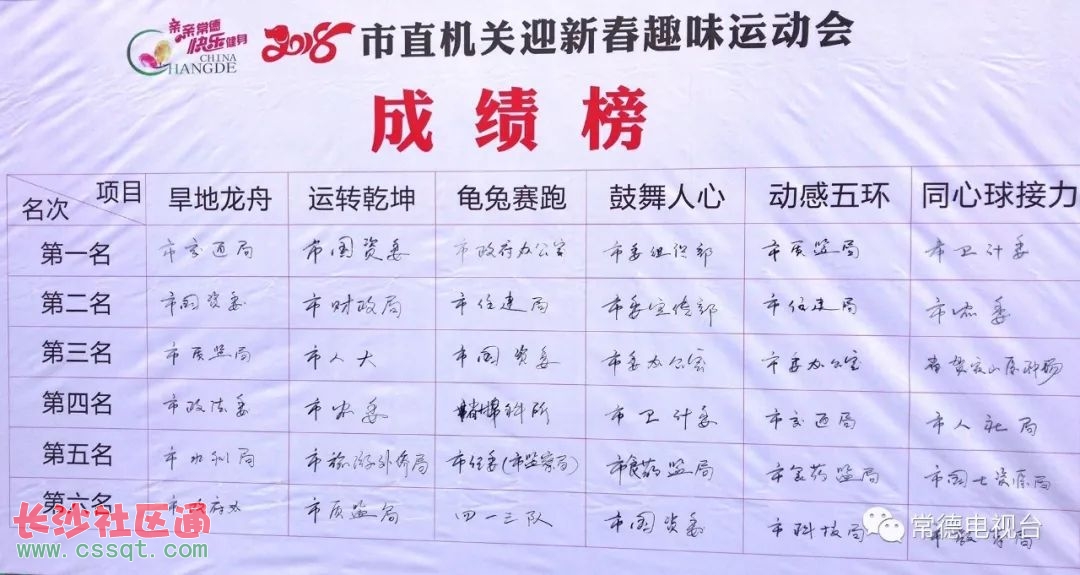 亲亲常德
快乐健身
CHINA
CHANGDE
2018 市直机关迎新春趣味运动会
成绩榜
项目
名次
旱地龙舟 运转乾坤 龟兔赛跑 鼓舞人心 动感五环 同心球接力
第一名 市交通局 市国资委 市政府办公室 市委组织部 市质监局 市卫计委
第二名 市国资委 市财政局 市住建局 市委宣传部 市住建局 市农委
第三名 市质监局 市人大 市国资委 市委办公室 市委办公室 省贺家山原种场
第四名 市政法委 市农委 科所 市卫计委 市交通局 市人社局
第五名 市水利局 市旅游外侨局 市纪委(市监察局) 市食药监局 市食药监局 市国土资源局
第六名 市政府办 市质监局 四一三队 市国资委 市科技局 市教育局
长沙社区通
www.cssqt.com
常德电视台